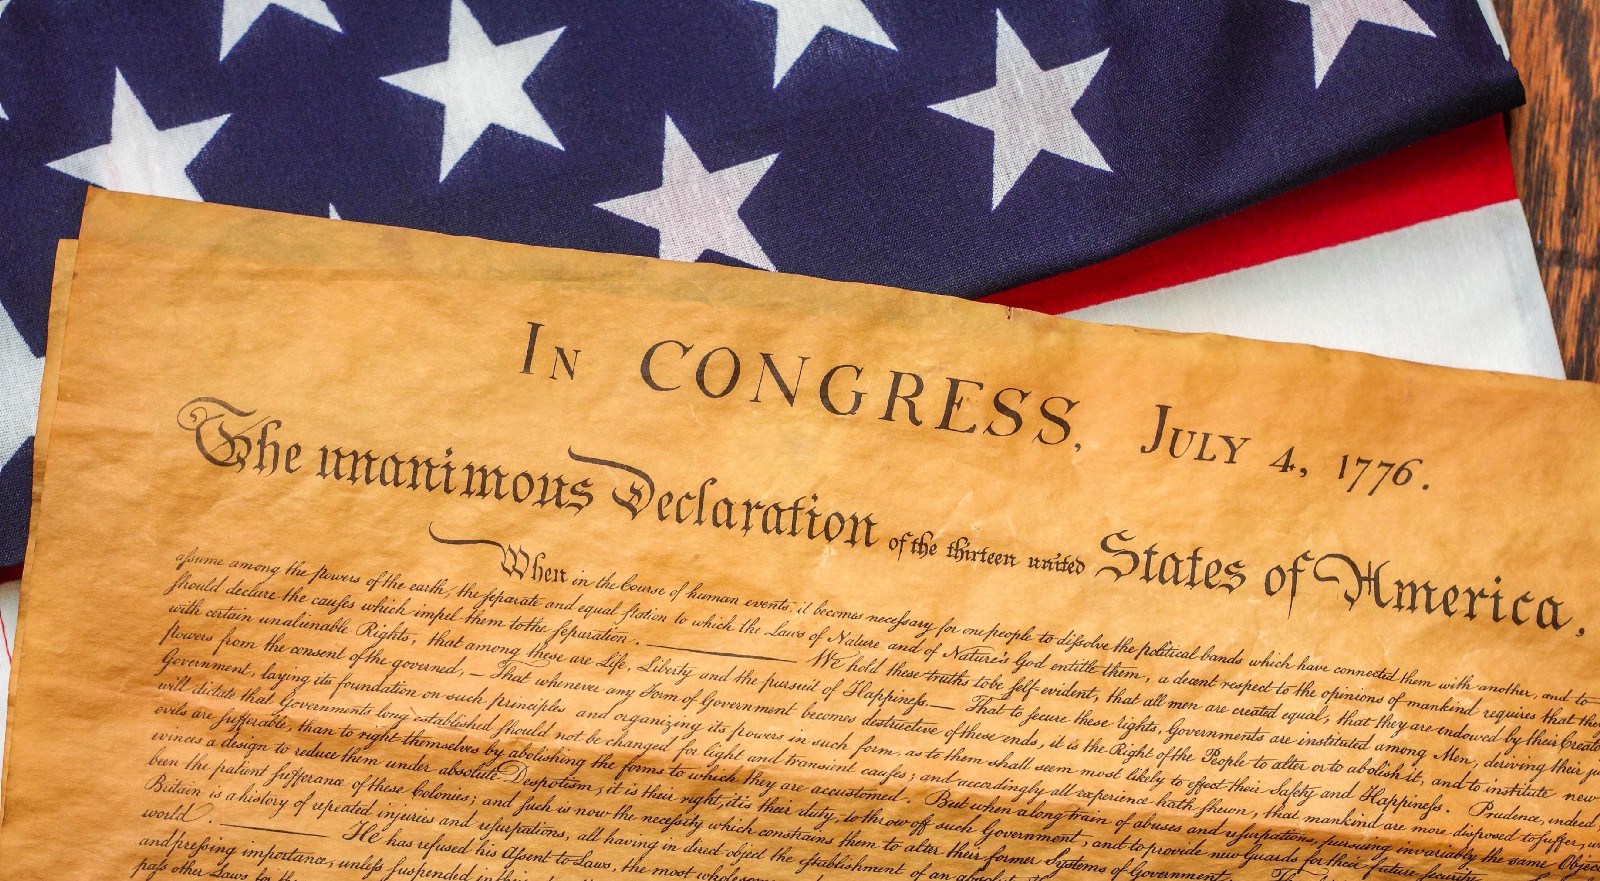 In CONGRESS, July 4, 1776.
The unanimous Declaration of the thirteen united States of America,
When in the Course of human events, it becomes necessary for one people to dissolve the political bands which have connected them with another, and to
assume among the powers of the earth, the separate and equal station to which the Laws of Nature and of Nature's God entitle them, a decent respect to the opinions of mankind requires that they
should declare the causes which impel them to the separation. ——— We hold these truths to be self-evident, that all men are created equal, that they are endowed by their Creato
with certain unalienable Rights, that among these are Life, Liberty and the pursuit of Happiness.— That to secure these rights, Governments are instituted among Men, deriving their ju
powers from the consent of the governed, — That whenever any Form of Government becomes destructive of these ends, it is the Right of the People to alter or to abolish it, and to institute new
Government, laying its foundation on such principles and organizing its powers in such form, as to them shall seem most likely to effect their Safety and Happiness. Prudence, indeed,
will dictate that Governments long established should not be changed for light and transient causes; and accordingly all experience hath shewn, that mankind are more disposed to suffer, w
evils are sufferable, than to right themselves by abolishing the forms to which they are accustomed. But when a long train of abuses and usurpations, pursuing invariably the same Objec
evinces a design to reduce them under absolute Despotism, it is their right, it is their duty, to throw off such Government, and to provide new Guards for their future security
been the patient sufferance of these Colonies; and such is now the necessity which constrains them to alter their former Systems of Government. Th
Britain is a history of repeated injuries and usurpations, all having in direct object the establishment of an absolut
world. ——— He has refused his Assent to Laws, the most wholesom
and pressing importance, unless suspended in
pass other Laws for the